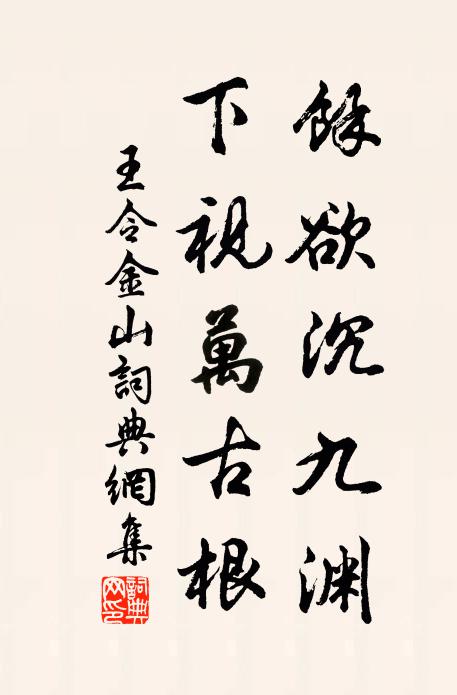 餘欲沉九渊
下視萬古根
王令金山詞典網集
詞典网印